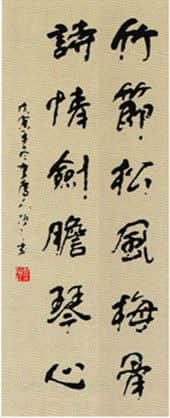 竹節松風梅骨
詩情劍膽琴心
戊寅